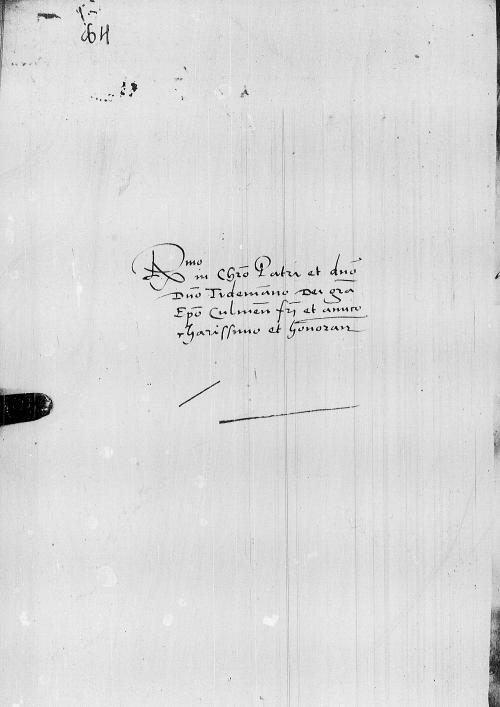 64
R mo
in Chro Patri et dno
Dno Tidemano Dei gra
Epo Culmen fri et amico
charissimo et honoran